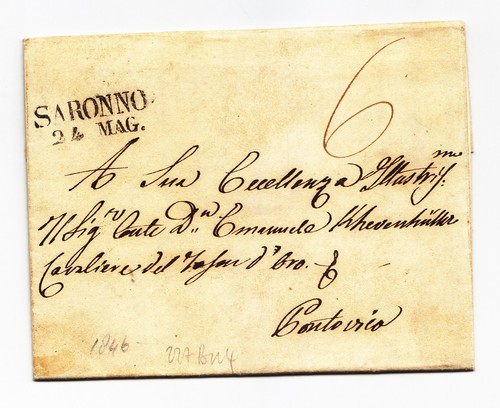 SARONNO
24 MAG.
6
A Sua Eccellenza Illustriss.mo
Il Sig.r Conte D.n Emanuele Khevenhüller
Cavaliere del Toson d'Oro.
Pontovico
1846